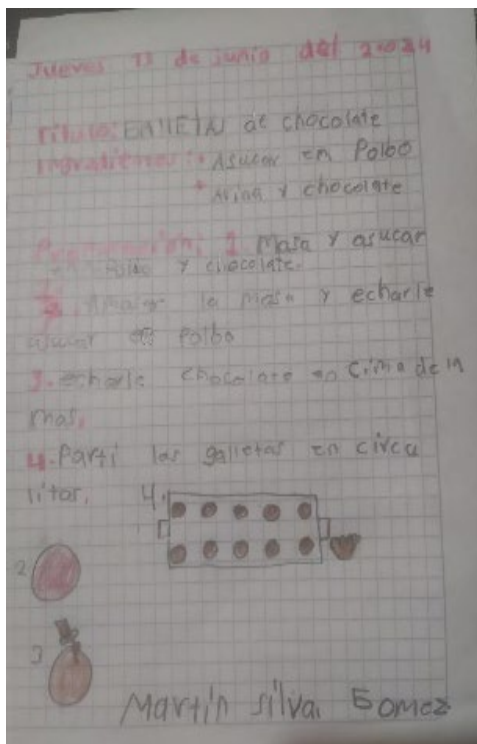 Jueves 13 de junio del 2024
Titulo: GALLETAS de chocolate
Ingredientes: • Asucar en Polbo
• Arina y chocolate
Preparación: 1. Masa y asucar
en Polbo y chocolate.
2. la masa y echarle
asucar en Polbo
3. echarle chocolate en cima de la
masa.
4. Parti las galletas en circu
litos. 4.
2
3
Martín Silva. Gomez